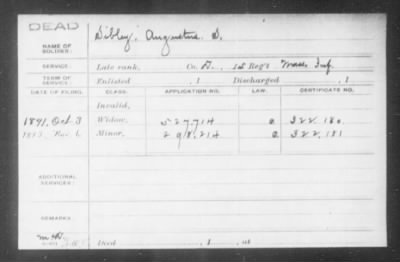 DEAD
NAME OF SOLDIER: Sibley, Augustus D.
SERVICE: Late rank, Co. D., 1st Reg't Mass Inf.
TERM OF SERVICE: Enlisted , 1 Discharged , 1
DATE OF FILING. CLASS. APPLICATION NO. LAW. CERTIFICATE NO.
Invalid,
1891, Oct 3 Widow, 527.714 322.180
Minor, 298.214 322.181
ADDITIONAL SERVICES:
REMARKS:
Died , 1 , at